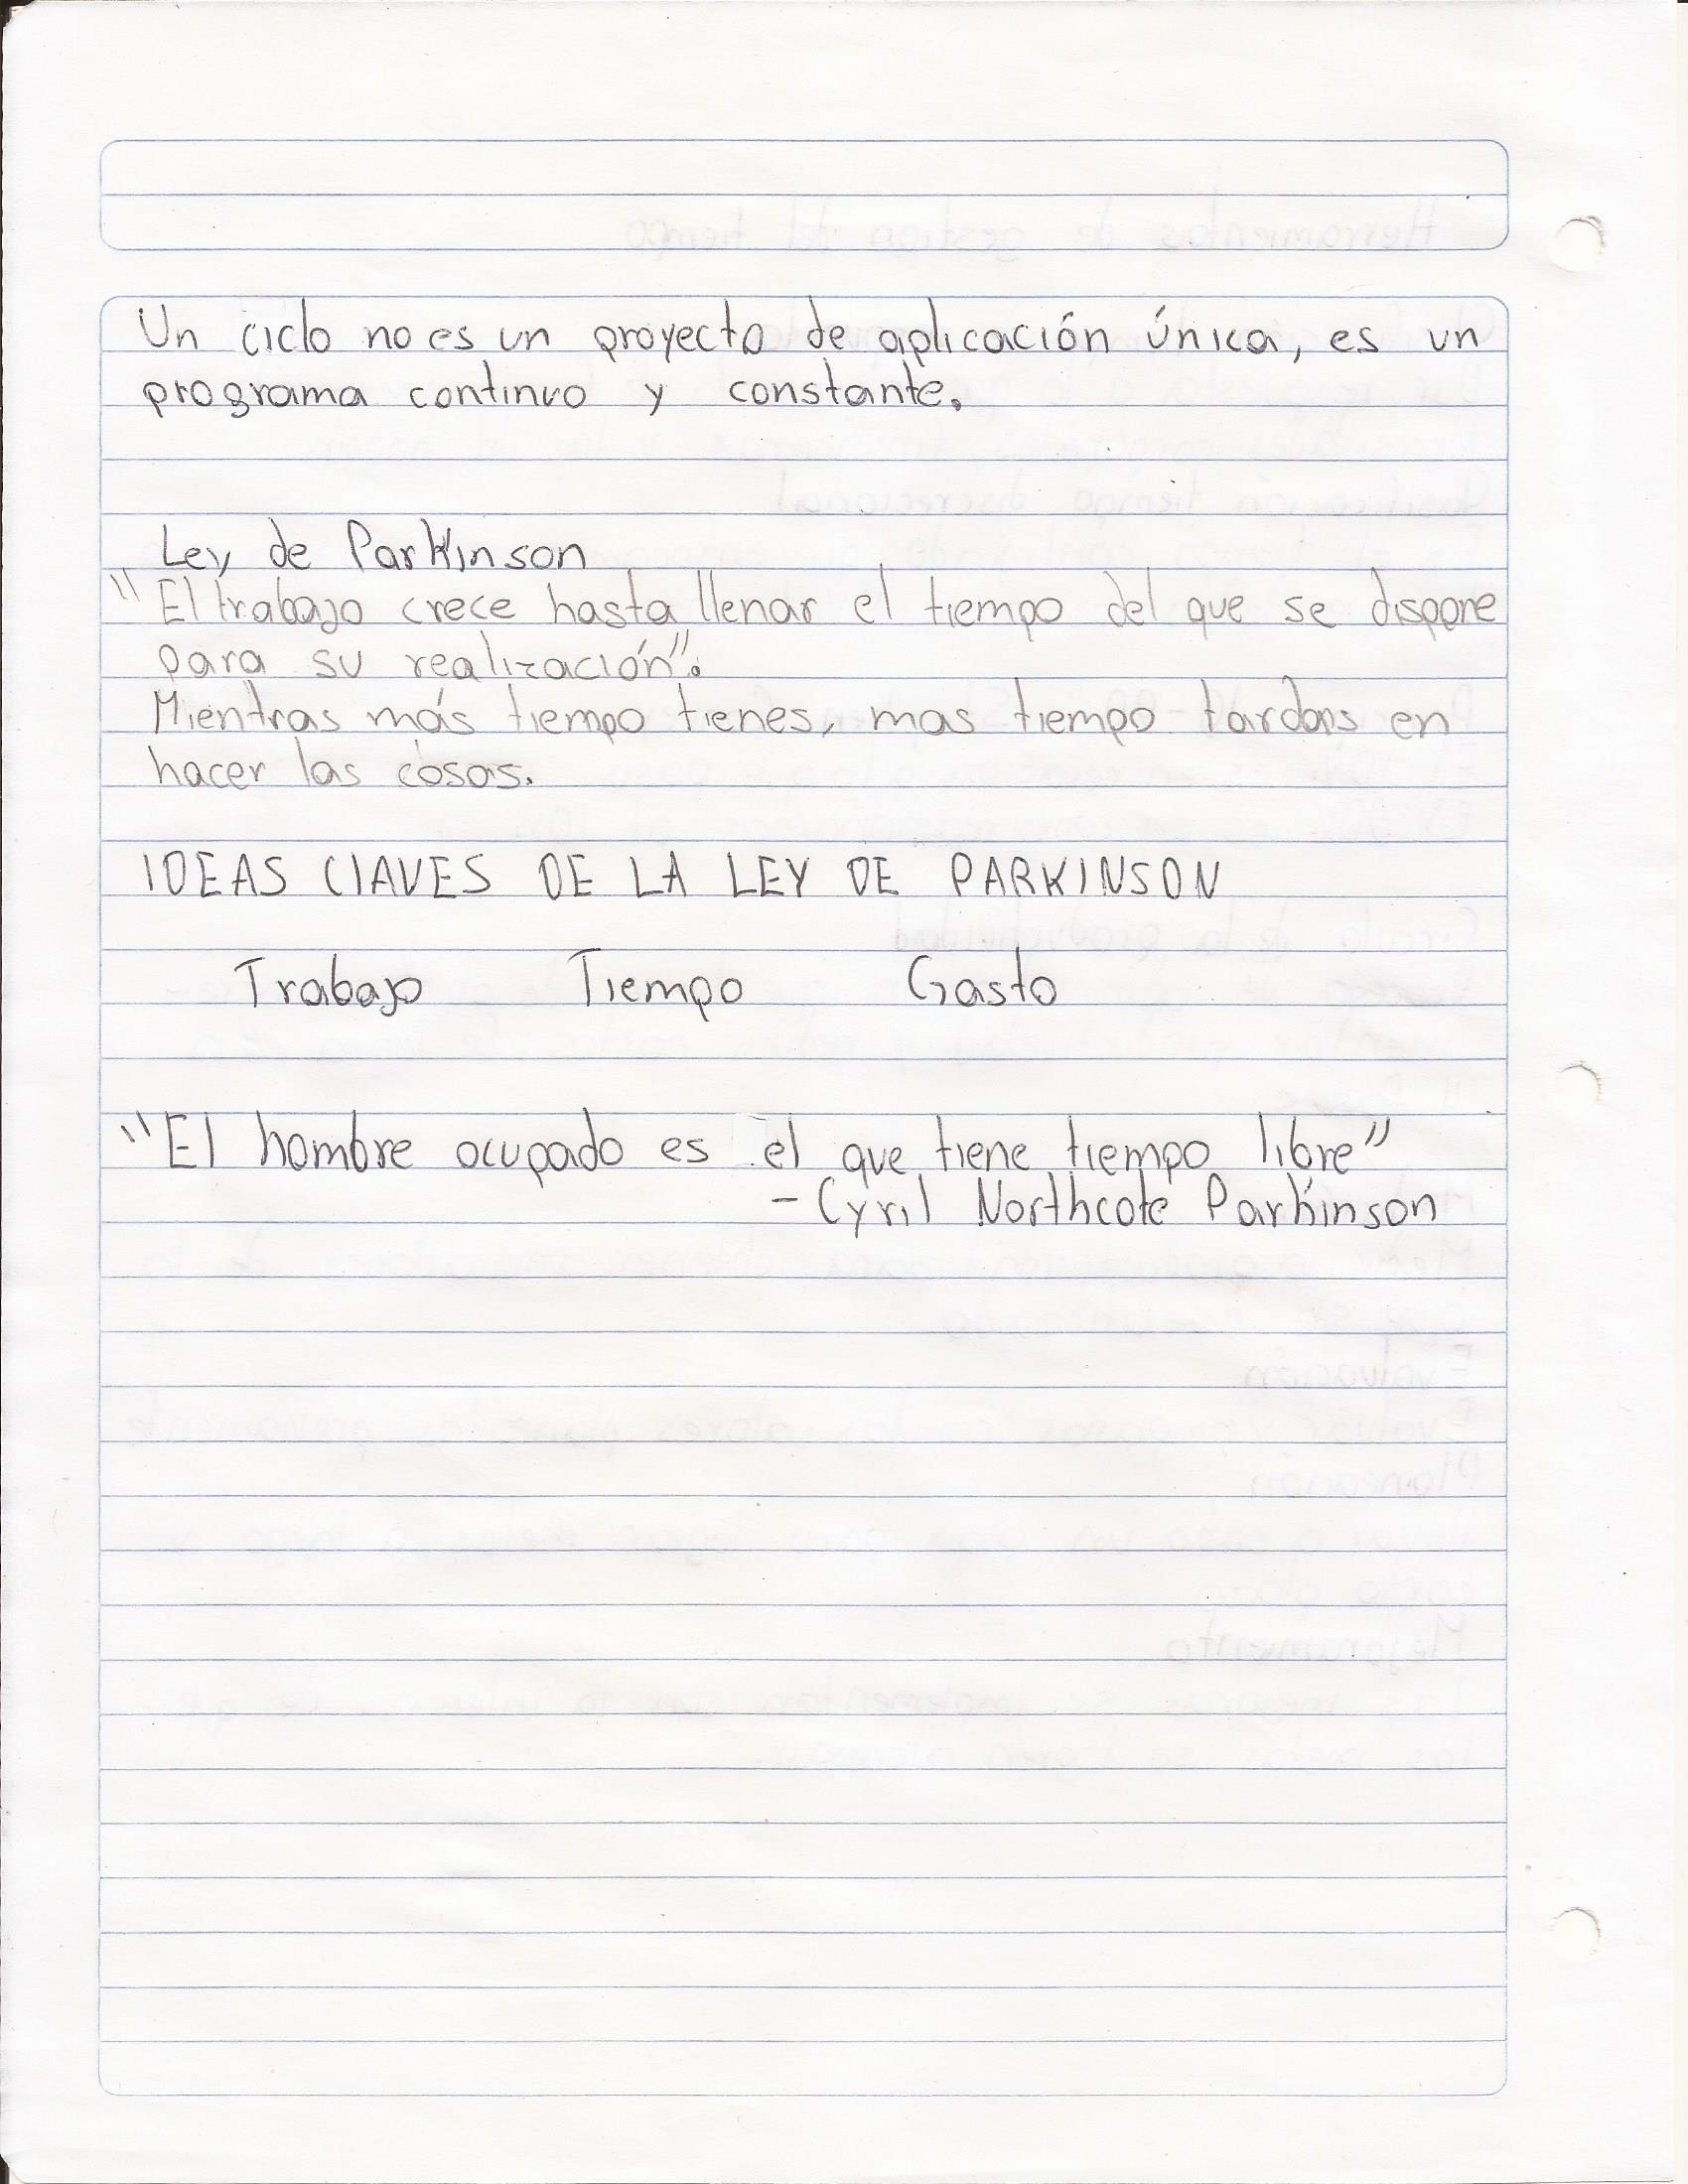 Un ciclo no es un proyecto de aplicación única, es un
programa continuo y constante.
Ley de Parkinson
"El trabajo crece hasta llenar el tiempo del que se dispone
para su realización".
Mientras más tiempo tienes, mas tiempo tardas en
hacer las cosas.
IDEAS CLAVES DE LA LEY DE PARKINSON
Trabajo Tiempo Gasto
"El hombre ocupado es el que tiene tiempo libre"
- Cyril Northcote Parkinson